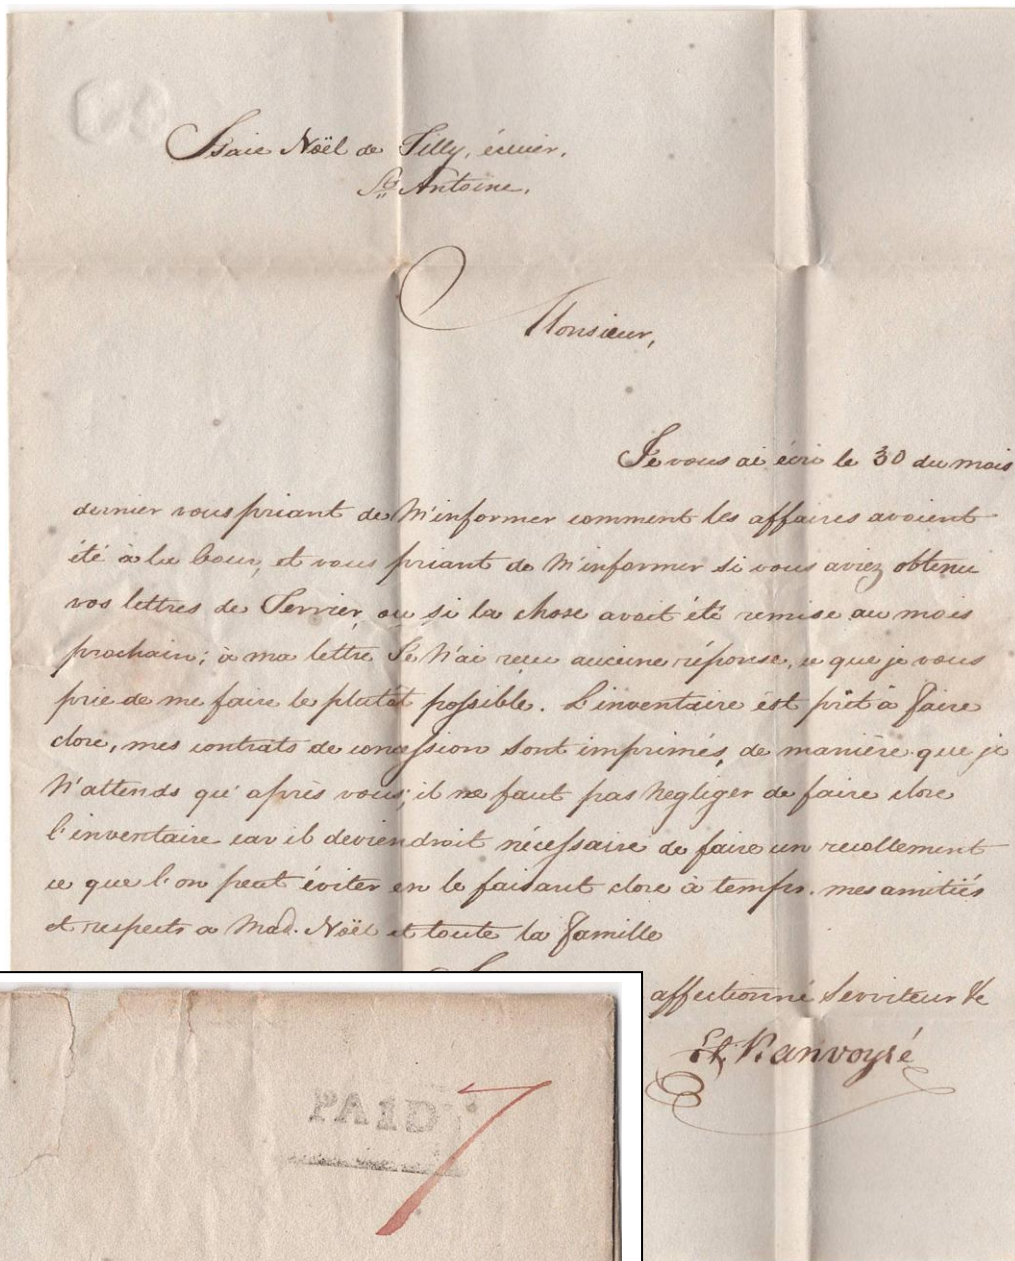 Isaie Noël de Tilly, écuier,
St Antoine,
Monsieur,
Je vous ai écri le 30 du mois
dernier vous priant de M'informer comment les affaires avoient
été à la Cour, et vous priant de M'informer si vous aviez obtenu
vos lettres de Terrier, ou si la chose avoit été remise au mois
prochain; à ma lettre Je N'ai reçu aucune réponse, ce que je vous
prie de me faire le plutôt possible. L'inventaire est prêt à faire
clore, mes contrats de concession sont imprimés, de manière que je
N'attends qu'après vous; il ne faut pas Negliger de faire clore
l'inventaire car il deviendroit nécessaire de faire un recollement
ce que l'on peut éviter en le faisant clore à temps. mes amitiés
et respects a Mad. Noël et toute la famille
affectionné Serviteur &c
Et. Ranvoyzé
PAID
7